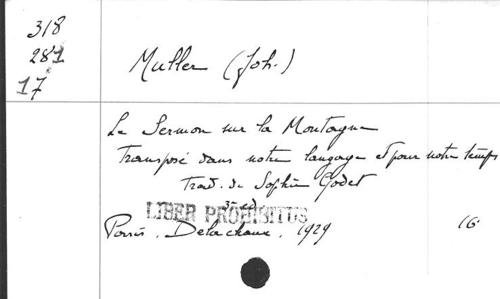 318
281
17
Muller (Joh.)
Le Sermon sur la Montagne
Transposé dans notre langage et pour notre temps
Trad. de Sophie Godet
3e ed.
LIBER PROHIBITUS
Paris, Delachaux, 1929 16°